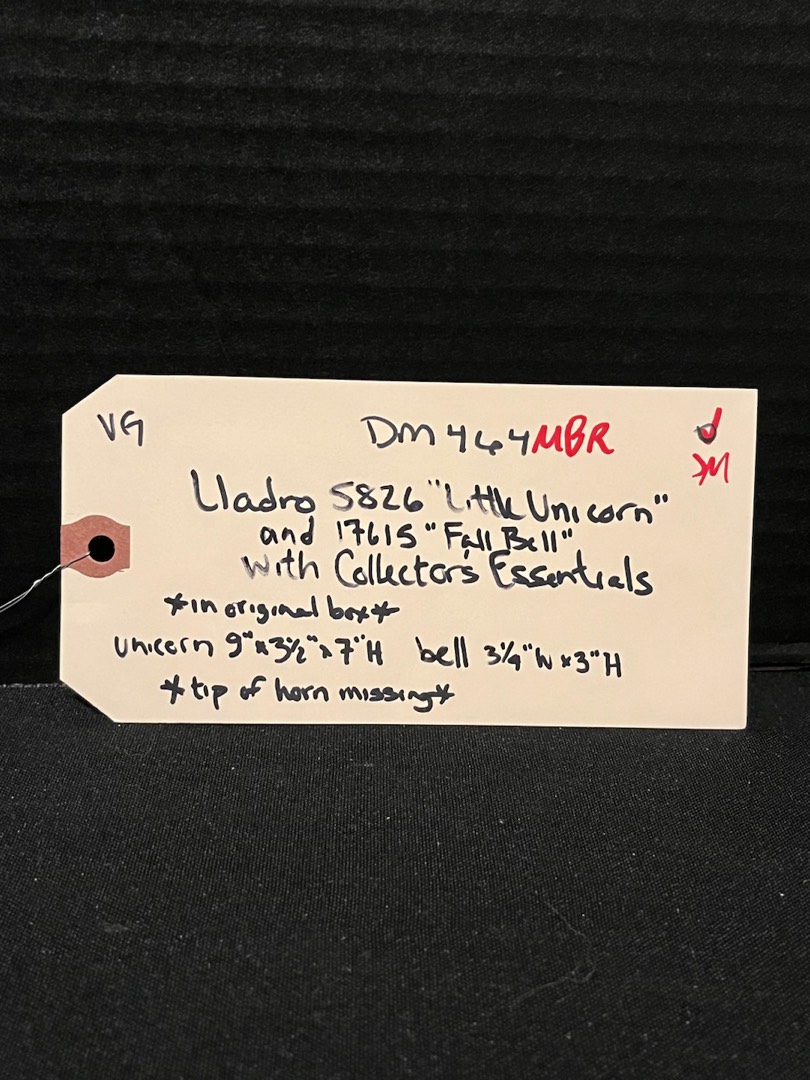 VG DM464MBR
DM
Lladro 5826 "Little Unicorn"
and 17615 "Fall Bell"
with Collector's Essentials
*in original box*
Unicorn 9"x3½"x7"H bell 3¼"W x 3"H
*tip of horn missing*